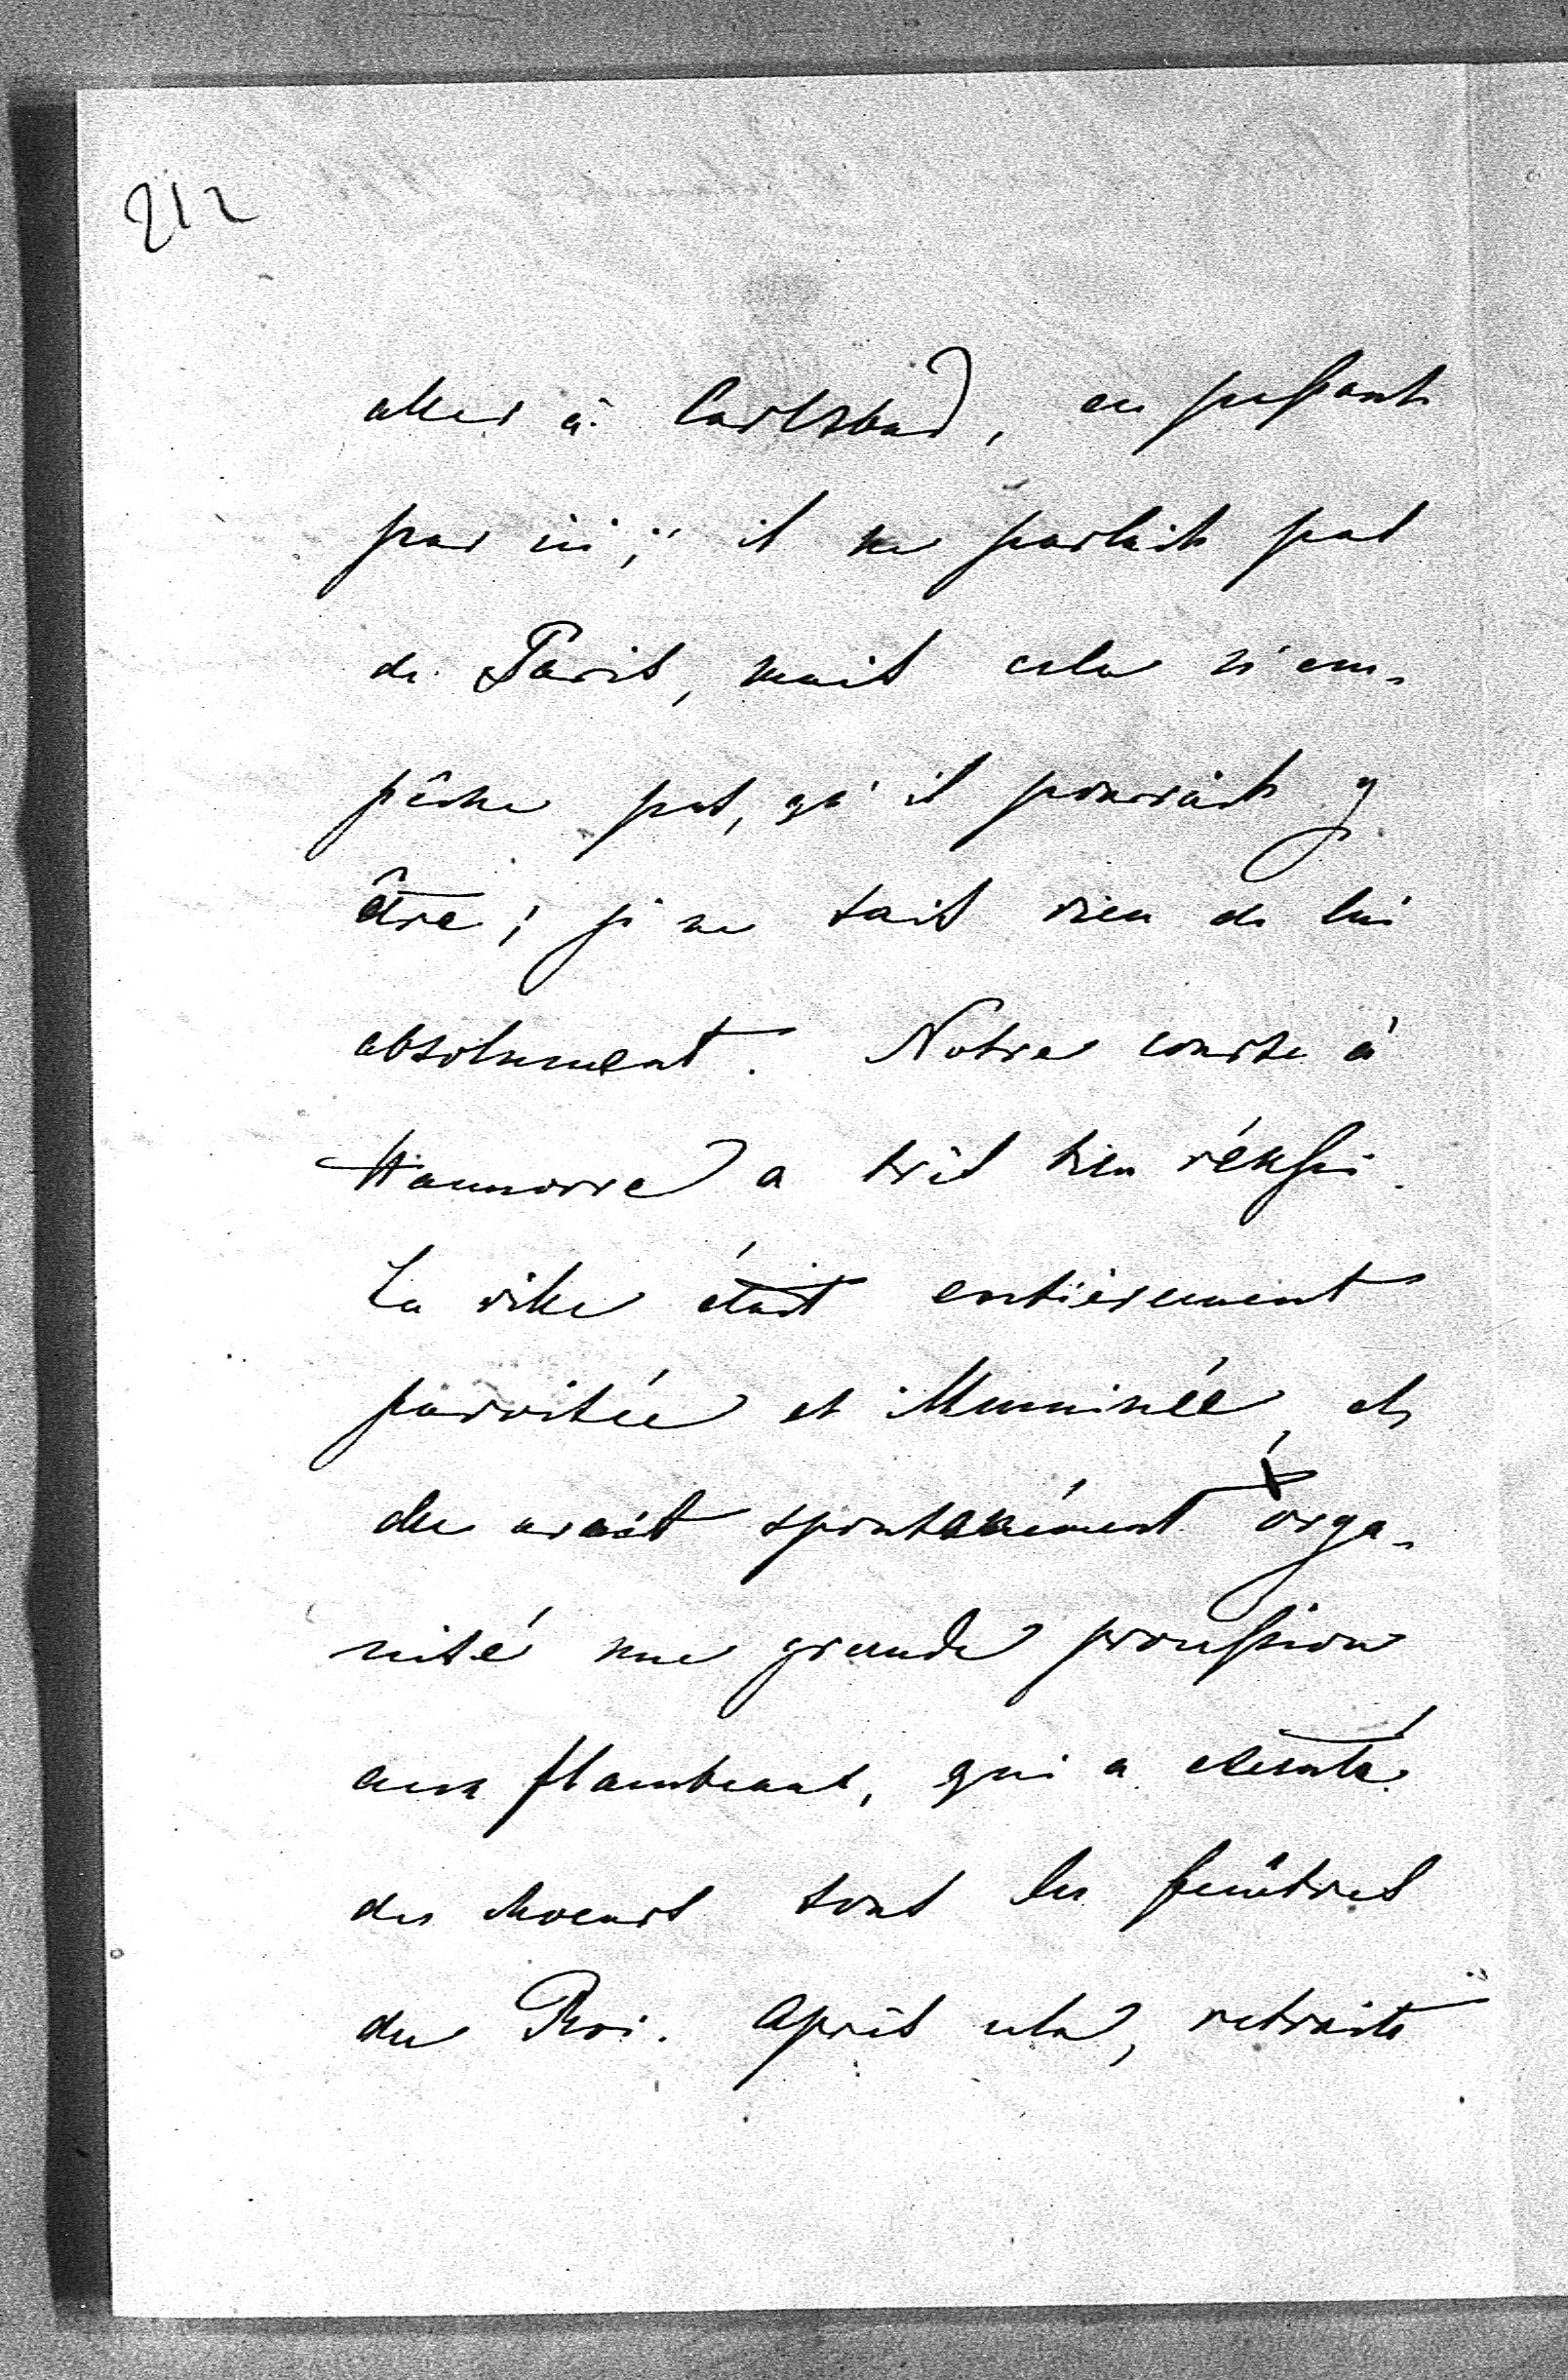 212
aller à Carlsbad, en passant
par ici; il ne parlait pas
de Paris, mais cela n'em-
pêche pas, qu'il pourrait y
être; je ne sais rien de lui
absolument. Notre course à
Hannovre a très bien réussi.
La ville était entièrement
pavoisée et illuminée, et
elle avait spontanément orga-
nisé une grande procession
aux flambeaux, qui a chanté
des choeurs sous les fenêtres
du Roi. Après cela, retraite